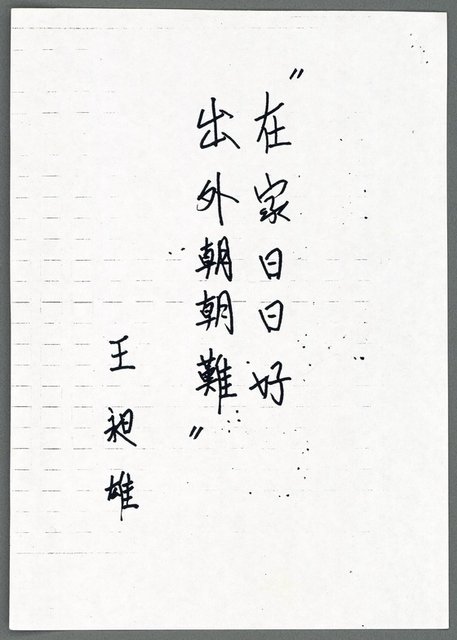 "在家日日好
出外朝朝難"
王昶雄